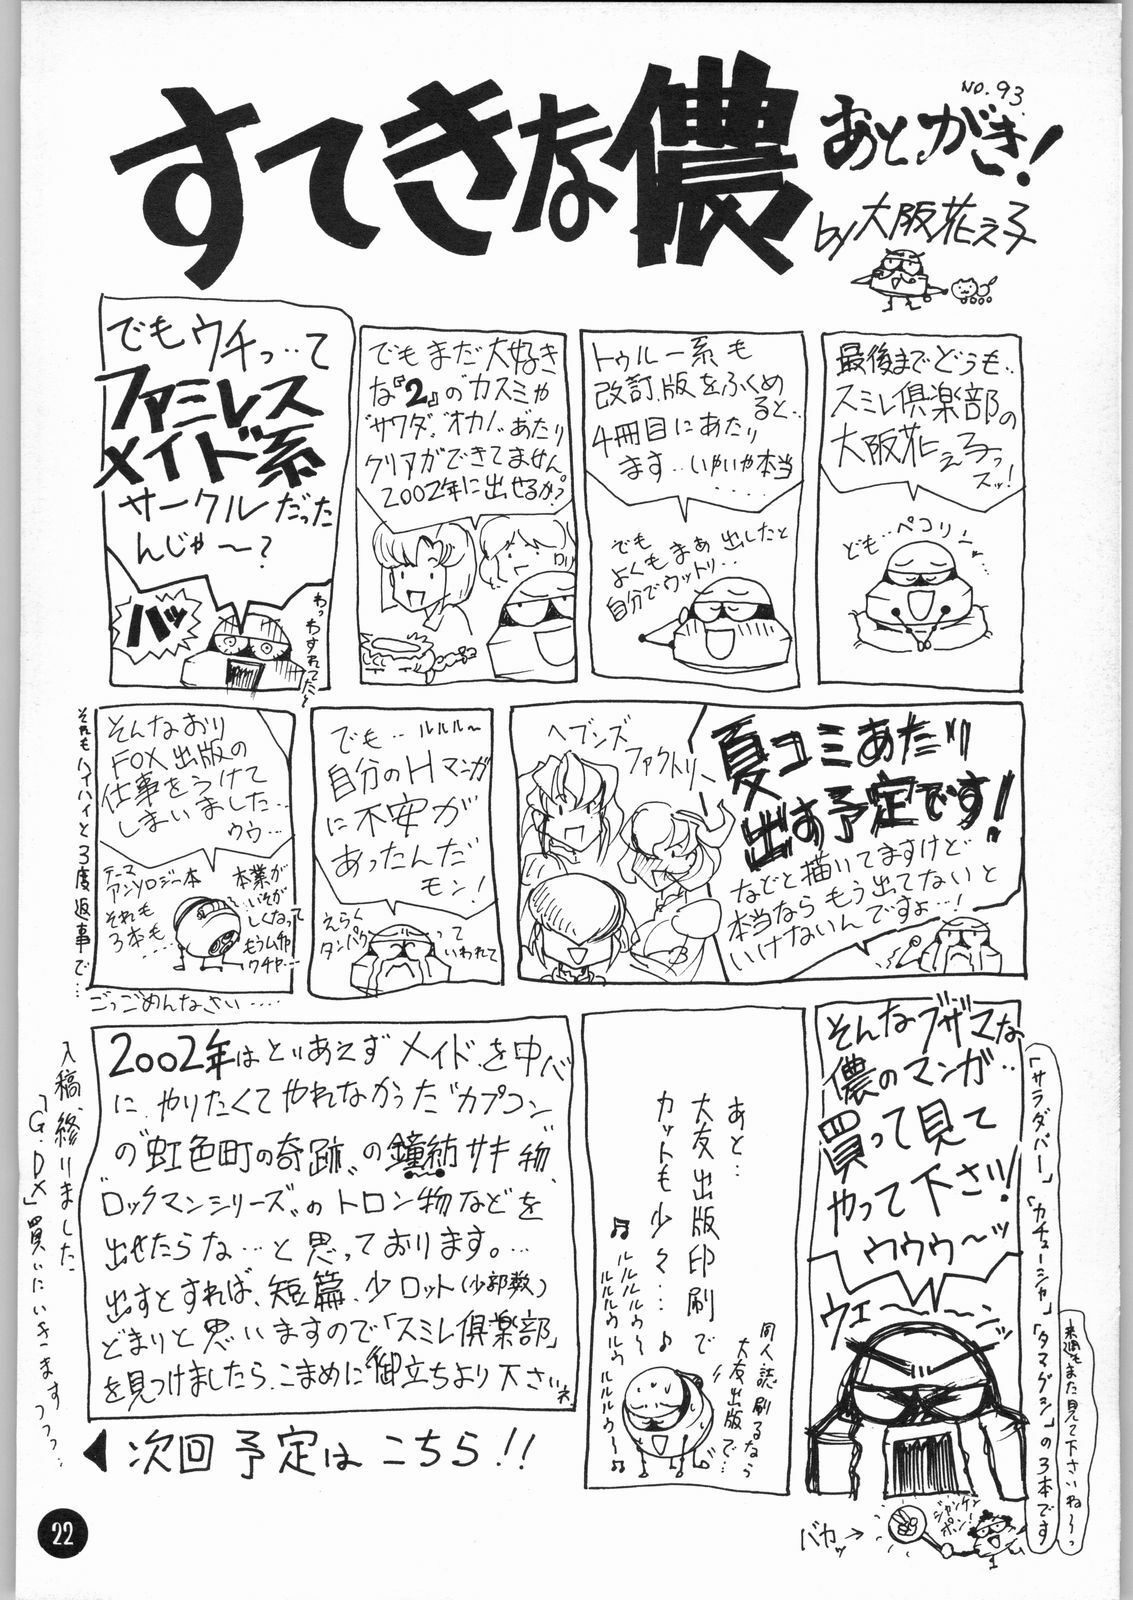 すてきな儂
NO.93.
あとがき!
by 大阪花え子
最後までどうも..
スミレ倶楽部の
大阪花え子っ
スッ!
ども..ペコリ
トゥルー系も
改訂版をふくめ
ると..
4冊目にあたり
ます..いやいや本当
.....
でも
よくもまぁ出したと
自分でウットリ...
でもまだ大好き
な『2』のカスミや
“サワダ”“オカノ”あたり
クリアができてません
2002年に出せるか?
ロリ
でもウチっ..て
ファミレス
メイド系
サークルだった
んじゃ〜?
バッ
わっわすれてたぁ
夏コミあたり
出す予定です!
などと描いてますけど
本当なら もう出てないと
いけないんですよ..!
ヘブンズ
ファクトリー
でも..ルルル〜
自分のHマンガ
に不安が
あったんだ
モン!
えらく
タンパク
っていわれて
そんなおり
FOX出版の
仕事をうけて
しまいました...
ウウ...
テーマ
アンソロジー本
それも
3本も...
本業が
いそが
しくなって
もうムチャ
クチャ...
それもハイハイと3度返事で...
ごっごめんなさい....
そんなブザマな
儂のマンガ..
買って見て
やって下さい!
ウゥゥ〜ッ
ウェ〜〜ン
「サラダバー」「カチューシャ」「タマダシ」の3本です
来週もまた見て下さいね〜っ
ジャンケン
ポン!
バカッ→
あと...
大友出版印刷で
カットも少々...♪
同人誌刷るなら
大友出版で...
♬ルルルルゥ〜
ルルルゥルゥ
ルルルゥ〜♬
2002年はとりあえずメイドを中心
に、やりたくてやれなかった“カプコン”
の“虹色町の奇跡”の鐘紡サキ物、
“ロックマンシリーズ”のトロン物などを
出せたらな...と思っております。...
出すとすれば、短篇、少ロット(少部数)
どまりと思いますので「スミレ倶楽部」
を見つけましたら、こまめに御立ちより下さいネ
入稿、終りました
「G.DX」買いにいきますっっっ..
◀次回予定はこちら!!
22